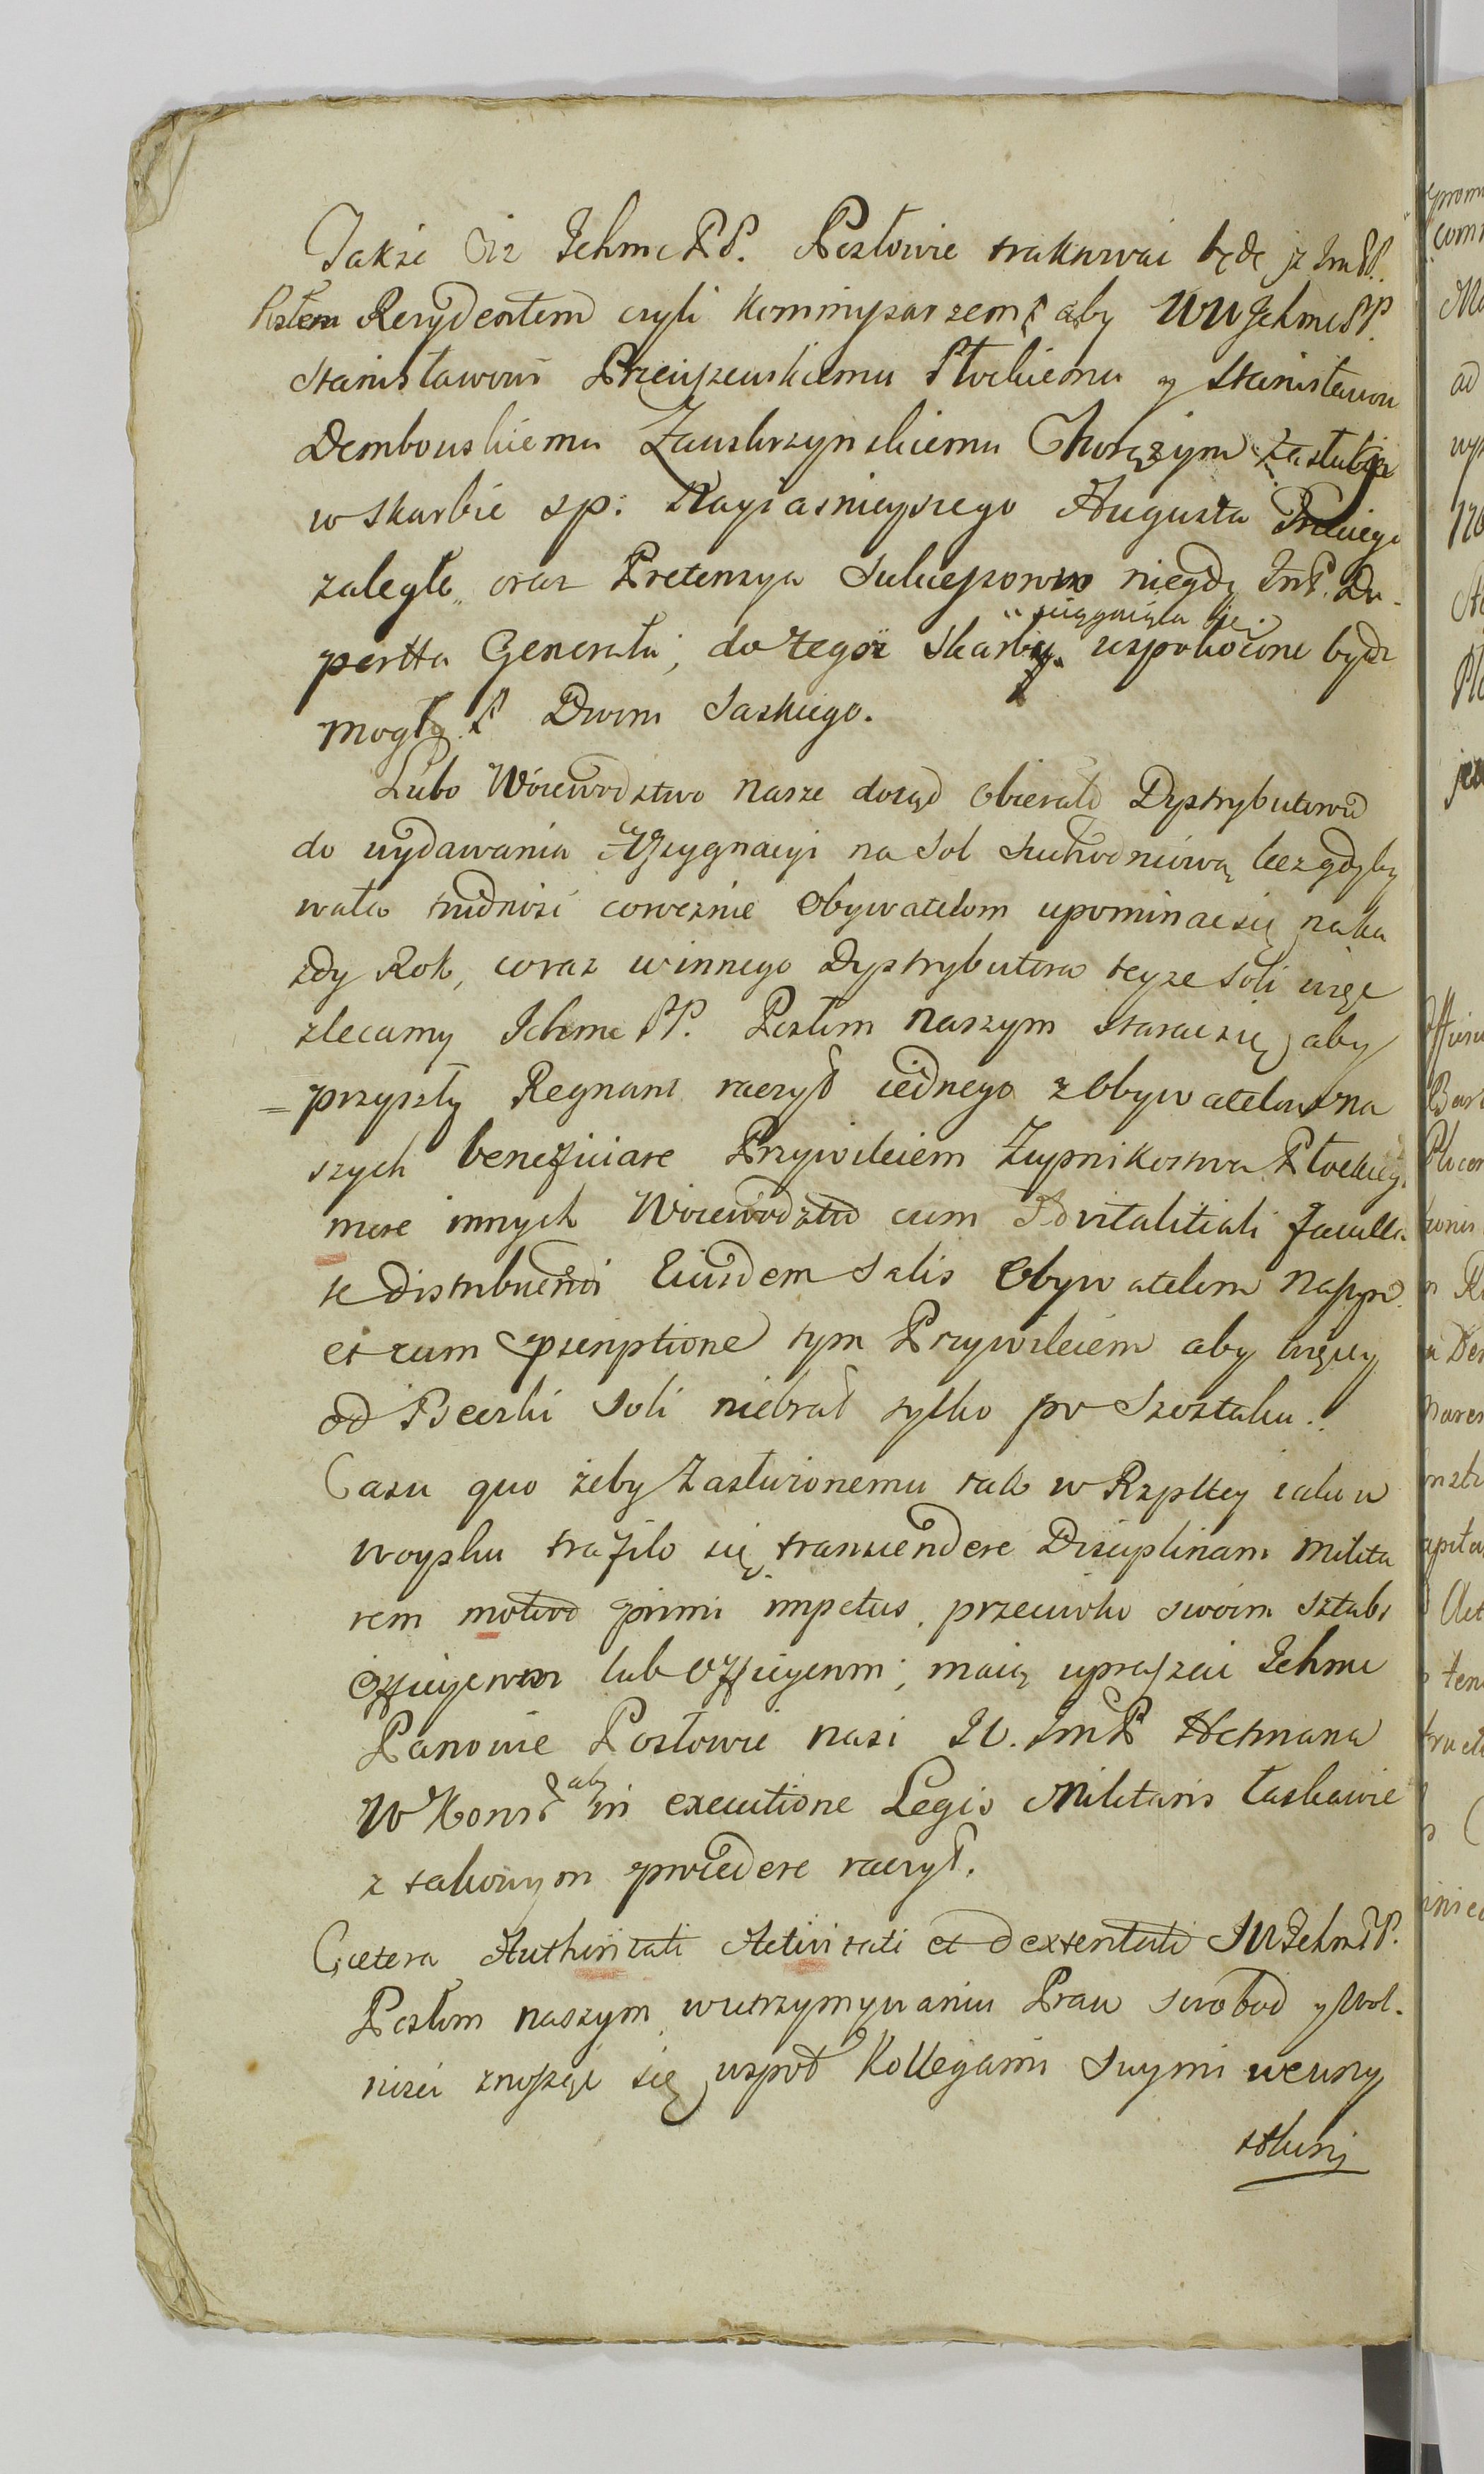 Także Ciż Ichmć PP. Posłowie traktować będą z Im PP.
Posłem Rezydentem czyli Kommissarzem aby WW Ichmć PP.
Stanisławowi Przeciszewskiemu Płockiemu y Stanisławowi
Dembowskiemu Zawskrzynskiemu Chorążym zasługi
w skarbie sp: Nayiasnieyszego Augusta Trzeciego
zaległe oraz Pretensya Sukcessorow niegdy ImP. Du-
ściągaiąca się
pertta Generała, do tegoż Skarbu uspokoione bydz
mogły z Dworu Saskiego.
Lubo Woiewodztwo nasze dotąd obierało Dystrybutorow
do wydawania Assygnacyi na Sol Suchodniową lecz gdy by
wała trudność corocznie Obywatelom upominać się na ka
żdy Rok, coraz u innego Dystrybutora teyże Soli więc
zlecamy Ichmć PP. Posłom naszym starać się, aby
= przyszły Regnant raczył iednego z Obywatelow na
szych beneficiare Przywileiem Zupnikostwa Płockieg.
more innych Woiewodztw cum Advitalitiali faculta
te distribuendi Eiusdem Salis Obywatelom naszym
et cum praescriptione tym Przywileiem aby więcey
od Beczki Soli niebrał tylko po Szostaku.
Casu quo żeby Zasłużonemu tak w Rzpltey iako w
woysku trafiło się transcendere Disciplinam milita
rem motivo primi impetus, przeciwko swoim Sztabs
Officyerom lub Officyerom; maią upraszać Ichmć
Panowie Posłowie nasi JW. ImP Hetmana
W Koron: aby in executione Legis Militaris łaskawie
z takowym procedere raczył.
Caetera Authoritati Activitati et dexteritati JW Ichm PP.
Posłom naszym w utrzymywaniu Praw swobod y Wol-
ności znosząc się wspoł Kollegami Swymi